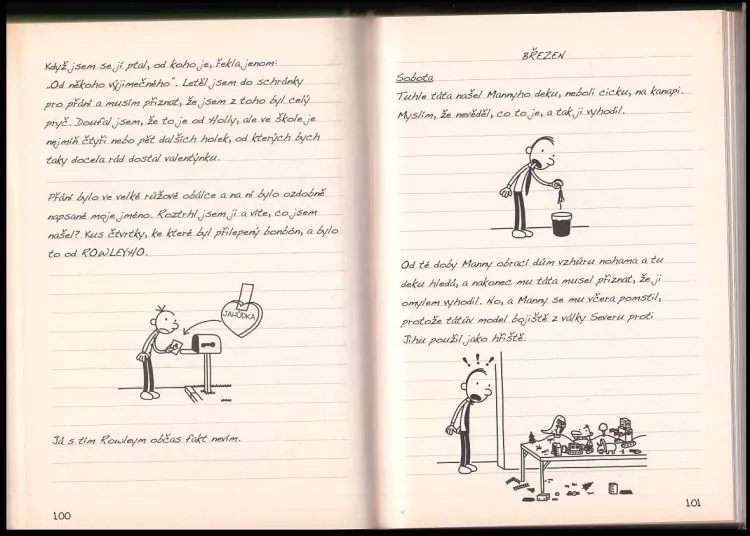 Když jsem se jí ptal, od koho je, řekla jenom:
„Od někoho výjimečného“. Letěl jsem do schránky
pro přání a musím přiznat, že jsem z toho byl celý
pryč. Doufal jsem, že to je od Holly, ale ve škole je
nejmíň čtyři nebo pět dalších holek, od kterých bych
taky docela rád dostal valentýnku.
Přání bylo ve velké růžové obálce a na ní bylo ozdobně
napsané moje jméno. Roztrhl jsem ji a víte, co jsem
našel? Kus čtvrtky, ke které byl přilepený bonbón, a bylo
to od ROWLEYHO.
JAHŮDKA
Já s tím Rowleym občas fakt nevím.
100
BŘEZEN
Sobota
Tuhle táta našel Mannyho deku, neboli cicku, na kanapi.
Myslím, že nevěděl, co to je, a tak ji vyhodil.
Od té doby Manny obrací dům vzhůru nohama a tu
deku hledá, a nakonec mu táta musel přiznat, že ji
omylem vyhodil. No, a Manny se mu včera pomstil,
protože tátův model bojiště z války Severu proti
Jihu použil jako hřiště.
! ! !
101